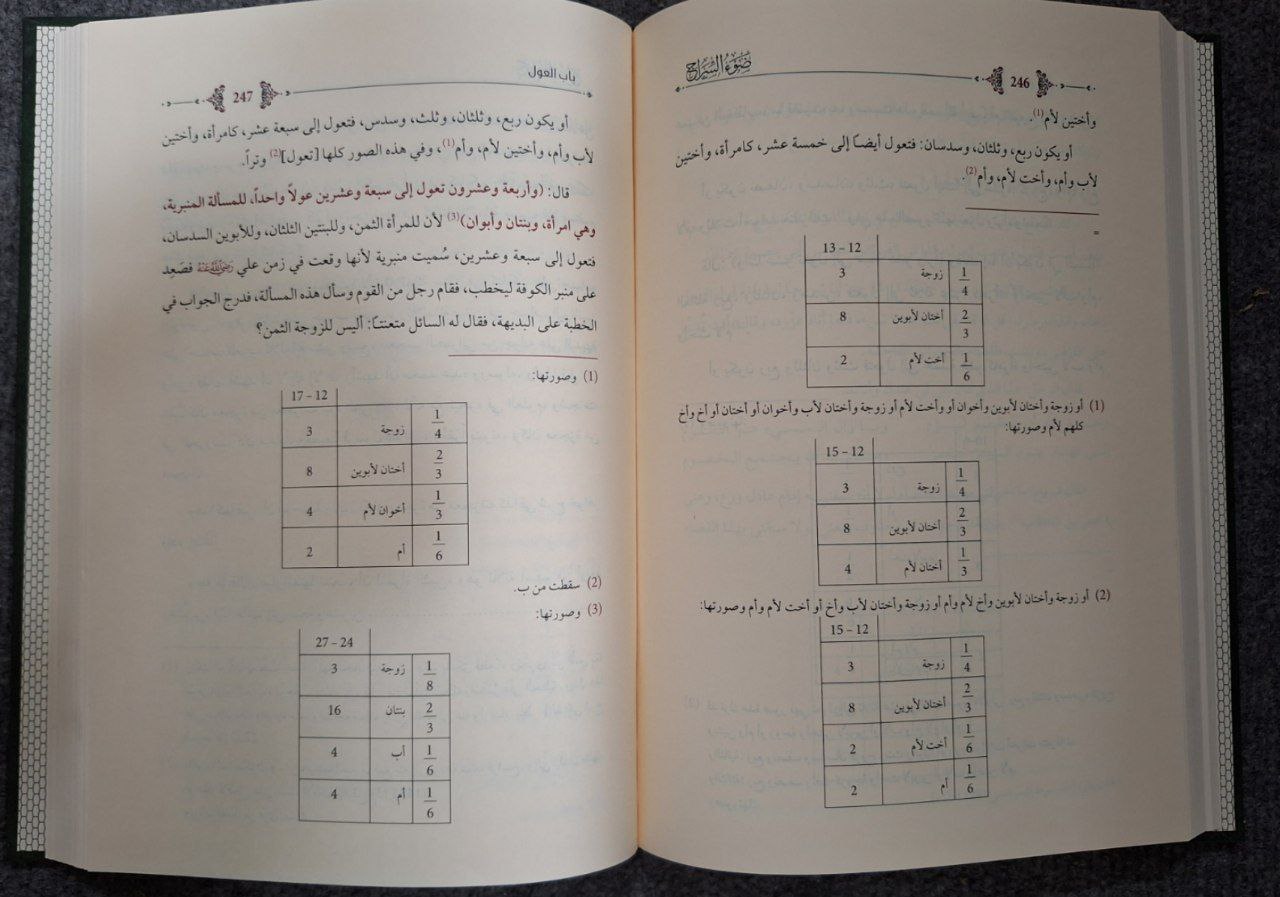 246
ضوء السراج
وأختين لأم(1).
أو يكون ربع، وثلثان، وسدسان: فتعول أيضاً إلى خمسة عشر، كامرأة، وأختين
لأب وأم، وأخت لأم، وأم(2).
=
12 – 13
1/4 زوجة 3
2/3 أختان لأبوين 8
1/6 أخت لأم 2
(1) أو زوجة وأختان لأبوين وأخوان أو وأخت لأم أو زوجة وأختان لأب وأخوان أو أختان أو أخ وأخ
كلهم لأم وصورتها:
12 – 15
1/4 زوجة 3
2/3 أختان لأبوين 8
1/3 أختان لأم 4
(2) أو زوجة وأختان لأبوين وأخ لأم وأم أو زوجة وأختان لأب وأخ أو أخت لأم وأم وصورتها:
12 – 15
1/4 زوجة 3
2/3 أختان لأبوين 8
1/6 أخت لأم 2
1/6 أم 2
باب العول
247
أو يكون ربع، وثلثان، وثلث، وسدس، فتعول إلى سبعة عشر، كامرأة، وأختين
لأب وأم، وأختين لأم، وأم(1)، وفي هذه الصور كلها [تعول](2) وتراً.
قال: (وأربعة وعشرون تعول إلى سبعة وعشرين عولاً واحداً، للمسألة المنبرية،
وهي امرأة، وبنتان وأبوان)(3) لأن للمرأة الثمن، وللبنتين الثلثان، وللأبوين السدسان،
فتعول إلى سبعة وعشرين، سُميت منبرية لأنها وقعت في زمن علي رضي الله عنه فصَعِد
على منبر الكوفة ليخطب، فقام رجل من القوم وسأل هذه المسألة، فدرج الجواب في
الخطبة على البديهة، فقال له السائل متعنتاً: أليس للزوجة الثمن؟
(1) وصورتها:
12 – 17
1/4 زوجة 3
2/3 أختان لأبوين 8
1/3 أخوان لأم 4
1/6 أم 2
(2) سقطت من ب.
(3) وصورتها:
24 – 27
1/8 زوجة 3
2/3 بنتان 16
1/6 أب 4
1/6 أم 4